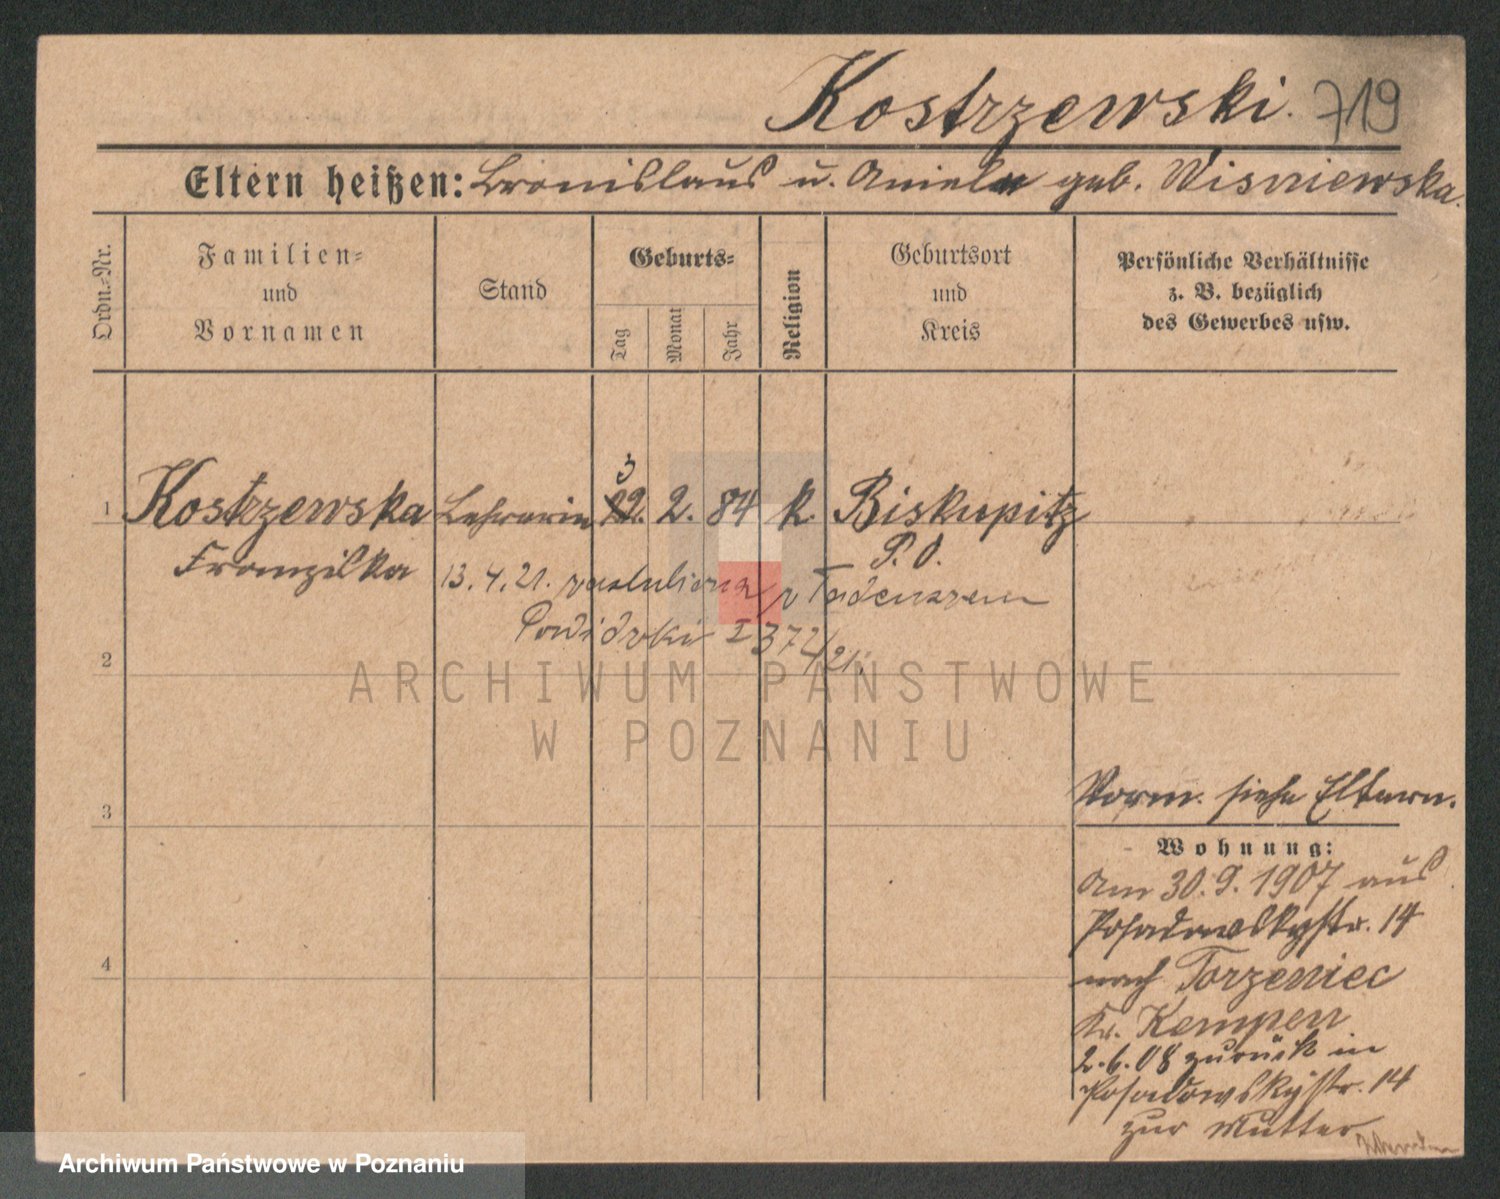 Kostrzewski. 719
Eltern heißen: Bronislaus u. Aniela geb. Wisniewska.
Ordn.-Nr.
Familien-
und
Vornamen
Stand
Geburts-
Tag
Monat
Jahr
Religion
Geburtsort
und
Kreis
Persönliche Verhältnisse
z. B. bezüglich
des Gewerbes usw.
3
1 Kostrzewska Lehrerin 22. 2. 84 k. Biskupitz
Franziska P. O.
13.4.21. zaślubiona z Tadeuszem
Powidzki I 372/21.
2
ARCHIWUM PAŃSTWOWE
W POZNANIU
Vorm. siehe Eltern.
3
Wohnung:
Am 30.9.1907 aus
Posadowskystr. 14
4
nach Torzeniec
Kr. Kempen
2.6.08 zurück in
Posadowskystr. 14
zur Mutter
Archiwum Państwowe w Poznaniu